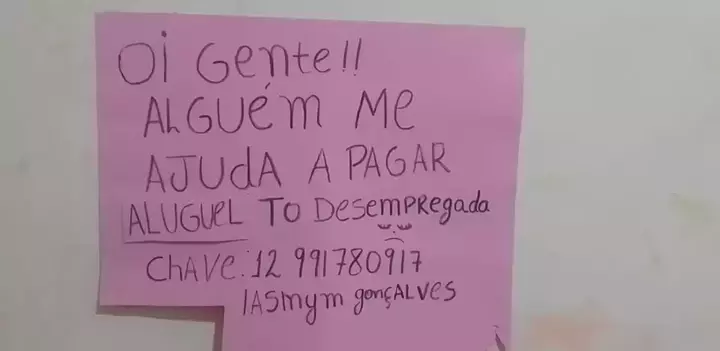 Oi Gente!!
ALGUém ME
AJUdA A PAGAR
ALUGUeL TO DesemPRegada
CHAVe: 12 991780917
IASmym gonçALves